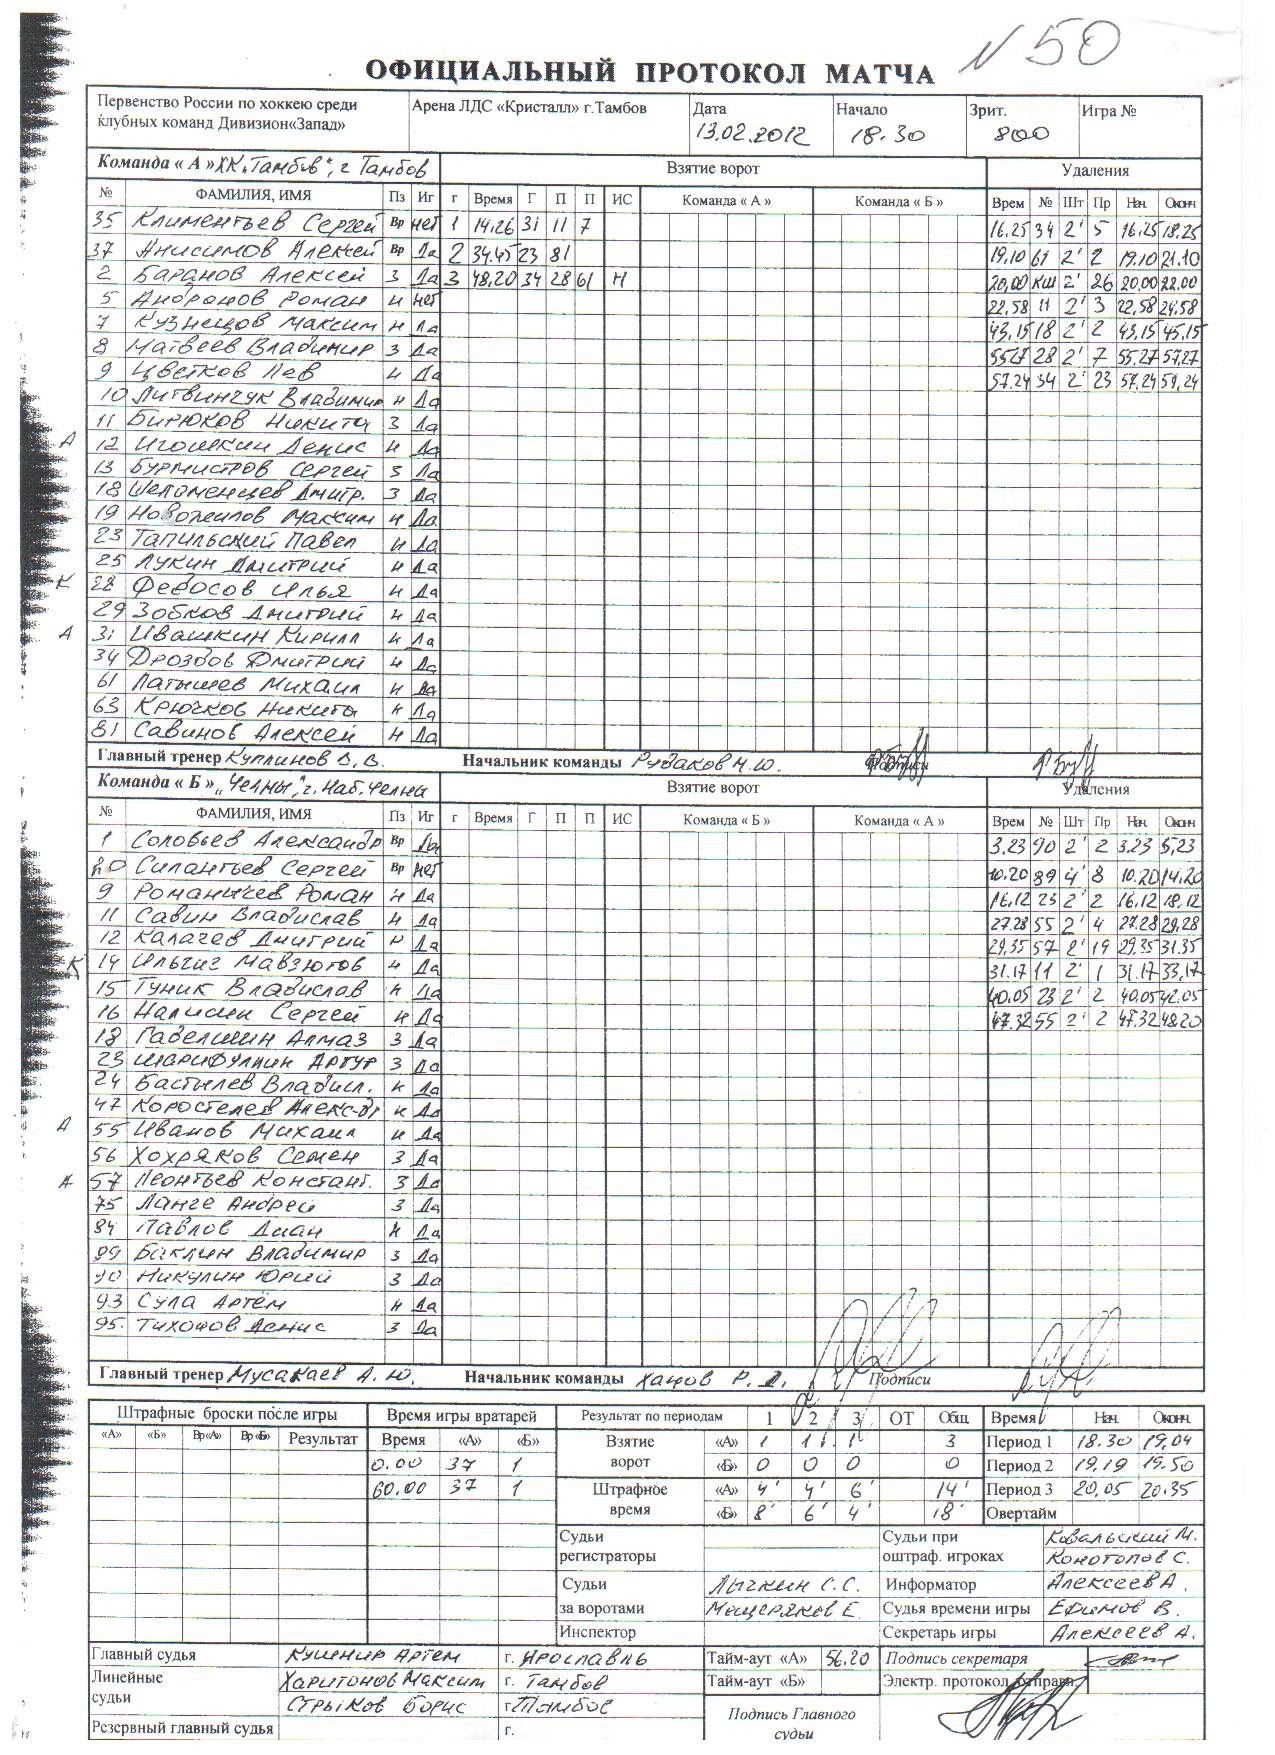 N 50
ОФИЦИАЛЬНЫЙ ПРОТОКОЛ МАТЧА
Первенство России по хоккею среди клубных команд Дивизион«Запад» Арена ЛДС «Кристалл» г.Тамбов Дата 13.02.2012 Начало 18.30 Зрит. 800 Игра №
Команда « А » ХК „Тамбов“, г Тамбов Взятие ворот Удаления
№ ФАМИЛИЯ, ИМЯ Пз Иг г Время Г П П ИС Команда « А » Команда « Б » Врем № Шт Пр Нач. Оконч
35 Климентьев Сергей Вр нет 1 14.26 31 11 7 16.25 34 2' 5 16.25 18.25
37 Анисимов Алексей Вр Да 2 34.45 23 81 19.10 61 2' 2 19.10 21.10
2 Баранов Алексей З Да 3 48.20 34 28 61 Н 20.00 КШ 2' 26 20.00 22.00
5 Андронов Роман Н нет 22.58 11 2' 3 22.58 24.58
7 Кузнецов Максим Н Да 43.15 18 2' 2 43.15 45.15
8 Матвеев Владимир З Да 55.27 28 2' 7 55.27 57.27
9 Цветков Лев Н Да 57.24 34 2' 23 57.24 59.24
10 Литвинчук Владимир Н Да
11 Бирюков Никита З Да
А 12 Игошкин Денис Н Да
13 Бурмистров Сергей З Да
18 Шеломенцев Дмитр. З Да
19 Новожилов Максим Н Да
23 Тапильский Павел Н Да
25 Лукин Дмитрий Н Да
К 28 Федосов Илья Н Да
29 Зобков Дмитрий Н Да
А 31 Ивашкин Кирилл Н Да
34 Дроздов Дмитрий Н Да
61 Латышев Михаил Н Да
63 Крючков Никита Н Да
81 Савинов Алексей Н Да
Главный тренер Куплинов В.В. Начальник команды Рудаков Н.Ю. Подписи
Команда « Б » „Челны“, г. Наб.Челны Взятие ворот Удаления
№ ФАМИЛИЯ, ИМЯ Пз Иг г Время Г П П ИС Команда « Б » Команда « А » Врем № Шт Пр Нач. Оконч
1 Соловьев Александр Вр Да 3.23 90 2' 2 3.23 5.23
20 Силантьев Сергей Вр нет 10.20 89 4' 8 10.20 14.20
9 Романичев Роман Н Да 16.12 23 2' 2 16.12 18.12
11 Савин Владислав Н Да 27.28 55 2' 4 27.28 29.28
12 Калачев Дмитрий Н Да 29.35 57 2' 19 29.35 31.35
К 14 Ильгиз Мавзютов Н Да 31.17 11 2' 1 31.17 33.17
15 Туник Владислав Н Да 40.05 23 2' 2 40.05 42.05
16 Налисин Сергей Н Да 47.32 55 2' 2 47.32 48.20
18 Габелшин Алмаз З Да
23 Шарифуллин Артур З Да
24 Бастылев Владисл. Н Да
47 Коростелев Алекс-др Н Да
А 55 Иванов Михаил Н Да
56 Хохряков Семен З Да
А 57 Леонтьев Констант. З Да
75 Ланге Андрей З Да
84 Павлов Диан Н Да
89 Баклин Владимир З Да
90 Никулин Юрий З Да
93 Сула Артём Н Да
95. Тихонов Денис З Да
Главный тренер Мусакаев А. Ю. Начальник команды Ханов Р. Д. Подписи
Штрафные броски после игры Время игры вратарей Результат по периодам 1 2 3 ОТ Общ. Время Нач. Оконч.
«А» «Б» Вр«А» Вр«Б» Результат Время «А» «Б» Взятие ворот «А» 1 1 1 3 Период 1 18.30 19.04
0.00 37 1 «Б» 0 0 0 0 Период 2 19.19 19.50
60.00 37 1 Штрафное время «А» 4' 4' 6' 14' Период 3 20.05 20.35
«Б» 8' 6' 4' 18' Овертайм
Судьи регистраторы Судьи при оштраф. игроках Ковальский М.
Конотопов С.
Судьи за воротами Лычкин С.С. Информатор Алексеев А.
Мещеряков Е. Судья времени игры Ефимов В.
Инспектор Секретарь игры Алексеев А.
Главный судья Кушнир Артем г. Ярославль Тайм-аут «А» 56.20 Подпись секретаря
Линейные судьи Харитонов Максим г. Тамбов Тайм-аут «Б» Электр. протокол отправл.
Стрыков Борис г. Тамбов Подпись Главного судьи
Резервный главный судья г.